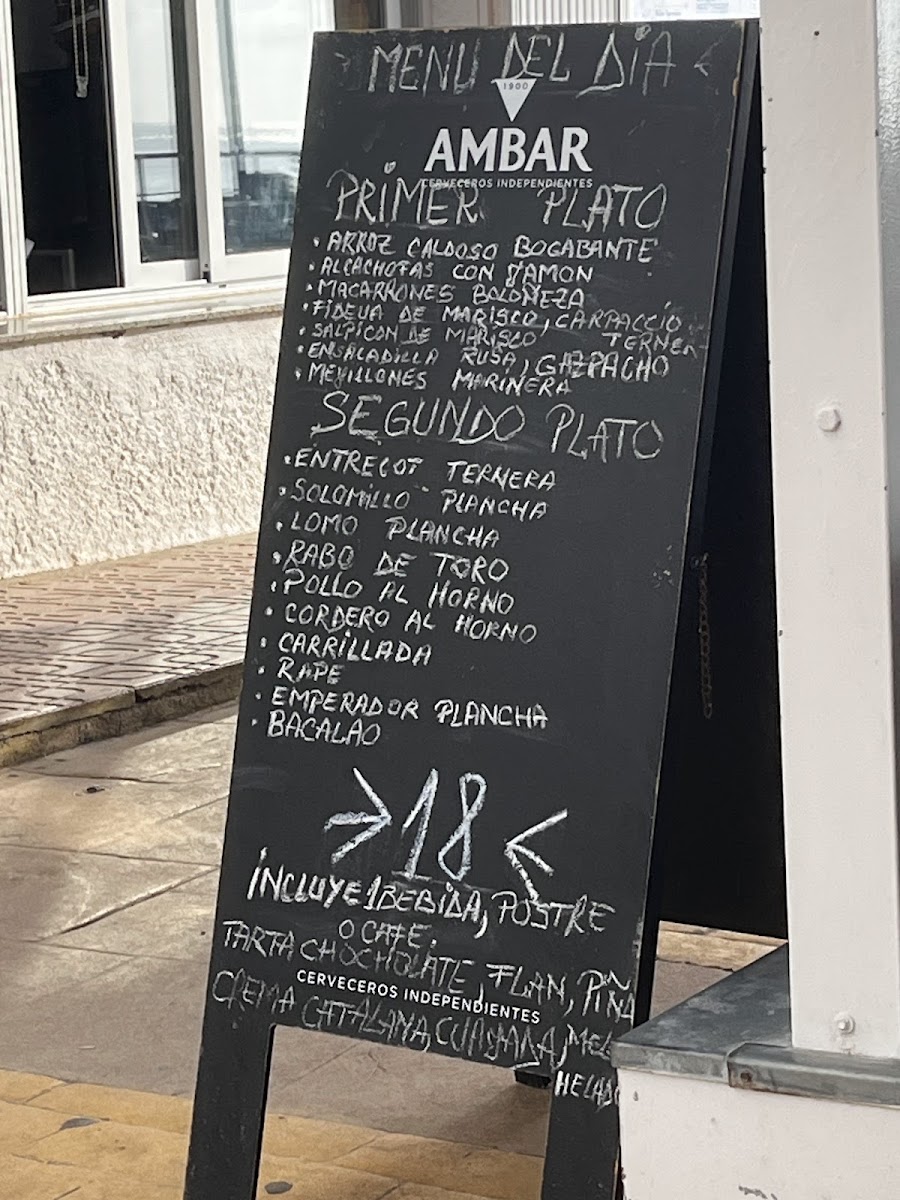 > MENU DEL DÍA <
1900
AMBAR
CERVECEROS INDEPENDIENTES
PRIMER PLATO
• ARROZ CALDOSO BOGABANTE
• ALCACHOFAS CON JAMON
• MACARRONES BOLOÑEZA
• FIDEUA DE MARISCO, CARPACCIO
• SALPICON DE MARISCO TERNER
• ENSALADILLA RUSA, GAZPACHO
• MEXILLONES MARINERA
SEGUNDO PLATO
• ENTRECOT TERNERA
• SOLOMILLO PLANCHA
• LOMO PLANCHA
• RABO DE TORO
• POLLO AL HORNO
• CORDERO AL HORNO
• CARRILLADA
• RAPE
• EMPERADOR PLANCHA
• BACALAO
→ 18 ←
INCLUYE 1 BEBIDA, POSTRE
O CAFE.
TARTA CHOCHOLATE, FLAN, PIÑA
CERVECEROS INDEPENDIENTES
CREMA CATALANA, CUAJADA, MEL
HELADO